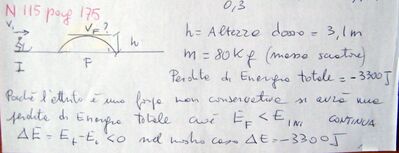 0,3
N 115 pag 175
Vi VF? h
h = Altezza dosso = 3,1 m
m = 80 Kg (massa sciatore)
I F
Perdita di Energia totale = -3300 J
Poiché l'attrito è una forza non conservativa si avrà una
perdita di Energia totale cioè EF < EINI. CONTINUA
ΔE = EF - Ei < 0 nel nostro caso ΔE = -3300 J